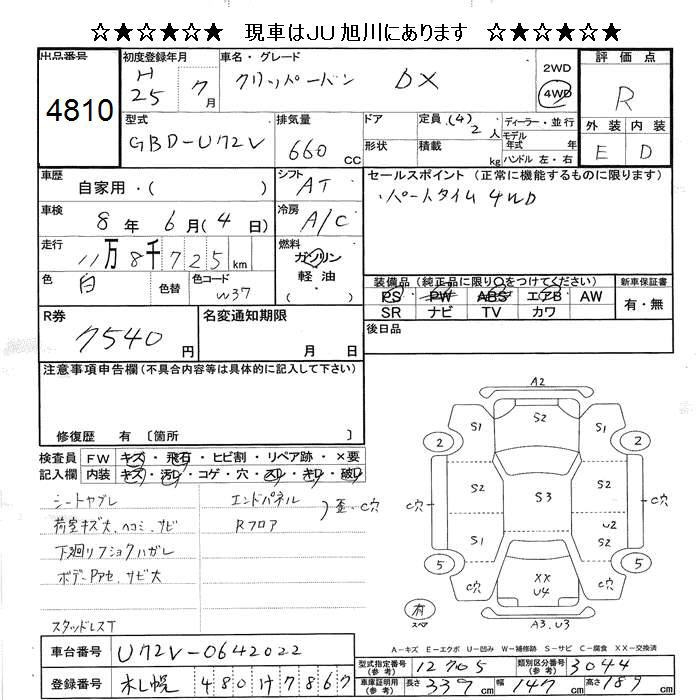 ☆★☆★☆★ 現車はJU旭川にあります ☆★☆★☆★
出品番号 初度登録年月 車名・グレード 評価点
4810
H25 7月
クリッパーバン DX
2WD
4WD
R
型式 排気量 ドア 定員 (4) 2人 ディーラー・並行
GBD-U72V 660cc
形状 積載 kg
モデル年式 年式
ハンドル 左・右
外装 内装
E D
車歴 自家用・( )
シフト AT
セールスポイント (正常に機能するものに限ります)
・パートタイム4WD
車検 8年 6月 (4日)
冷房 A/C
走行 11万8千725km
燃料 ガソリン 軽油 ( )
色 白 色替 色コード W37
装備品 (純正品に限り○をつけてください) 新車保証書
PS PW ABS エアB AW 有・無
SR ナビ TV カワ
R券 7540円
名変通知期限 月 日
後日品
注意事項申告欄 (不具合内容等は具体的に記入して下さい)
修復歴 有 〔箇所 〕
検査員記入欄 FW キズ・飛石・ヒビ割・リペア跡・×要
内装 キズ・汚レ・コゲ・穴・スレ・キレ・破レ
シートヤブレ エンドパネル
荷室キズ大、ヘコミ、サビ Rフロア 歪・C穴
下廻リフショクハガレ
ボデーPアセ、サビ大
スタッドレスT
A2
S1 S2 S1
2 2
C穴 S2 S3 S2 C穴
U2
S1 S2
5 5
C穴 XX U4 C穴
有 スペア A3.U3
A-キズ E-エクボ U-凹み W-補修跡 S-サビ C-腐食 XX-交換済
車台番号 U72V-0642022
型式指定番号 (参考) 12705 類別区分番号 (参考) 3044
登録番号 札幌 480け7867
車庫証明用 (参考) 長さ 339cm 幅 147cm 高さ 189cm